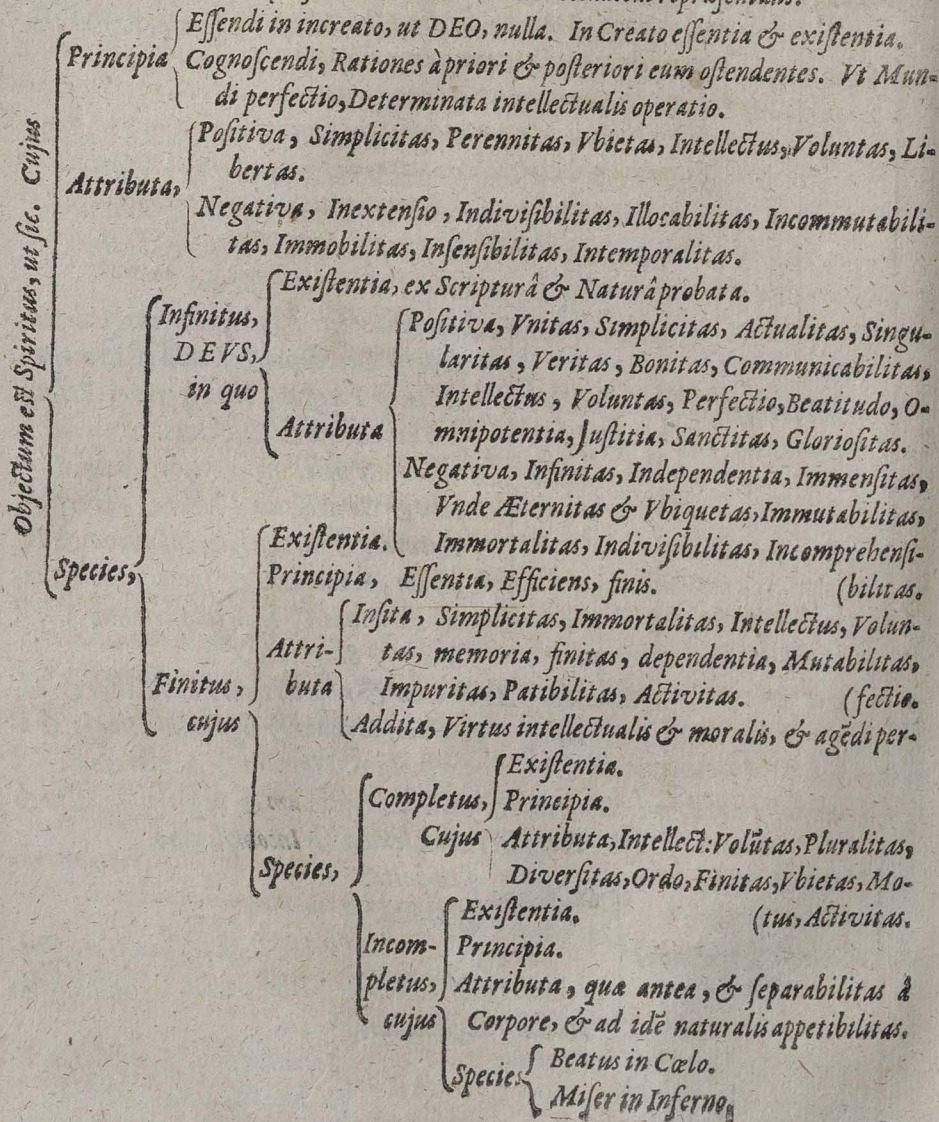 Objectum est Spiritus, ut sic. Cujus
Principia
Essendi in increato, ut DEO, nulla. In Creato essentia & existentia.
Cognoscendi, Rationes à priori & posteriori eum ostendentes. Vt Mun-
di perfectio, Determinata intellectualis operatio.
Attributa,
Positiva, Simplicitas, Perennitas, Vbietas, Intellectus, Voluntas, Li-
bertas.
Negativa, Inextensio, Indivisibilitas, Illocabilitas, Incommutabili-
tas, Immobilitas, Insensibilitas, Intemporalitas.
Species,
Infinitus,
DEVS,
in quo
Existentia, ex Scripturâ & Naturâ probata.
Attributa
Positiva, Vnitas, Simplicitas, Actualitas, Singu-
laritas, Veritas, Bonitas, Communicabilitas,
Intellectus, Voluntas, Perfectio, Beatitudo, O-
mnipotentia, Justitia, Sanctitas, Gloriositas.
Negativa, Infinitas, Independentia, Immensitas,
Vnde Æternitas & Vbiquetas, Immutabilitas,
Immortalitas, Indivisibilitas, Incomprehensi-
(bilitas.
Finitus,
cujus
Existentia.
Principia, Essentia, Efficiens, finis.
Attri-
buta
Insita, Simplicitas, Immortalitas, Intellectus, Volun-
tas, memoria, finitas, dependentia, Mutabilitas,
Impuritas, Patibilitas, Activitas.
(fectio.
Addita, Virtus intellectualis & moralis, & agēdi per-
Species,
Completus,
Cujus
Existentia.
Principia.
Attributa, Intellect: Volūtas, Pluralitas,
Diversitas, Ordo, Finitas, Vbietas, Mo-
(tus, Activitas.
Incom-
pletus,
cujus
Existentia.
Principia.
Attributa, quæ antea, & separabilitas à
Corpore, & ad idē naturalis appetibilitas.
Species
Beatus in Cœlo.
Miser in Inferno.